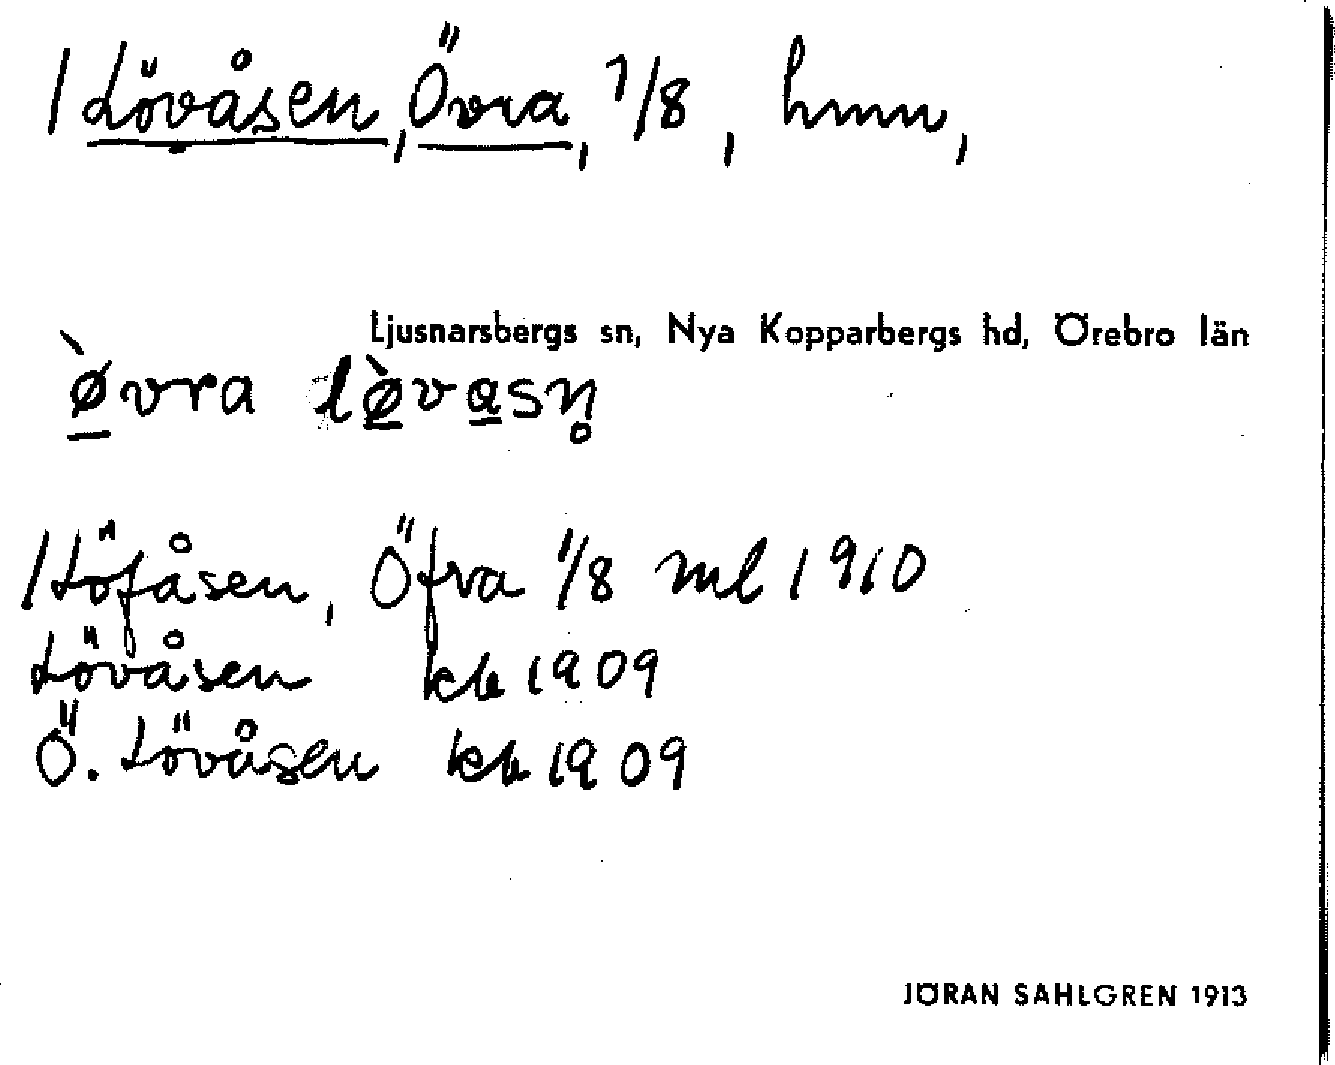 1 Lövåsen, Övra, 1/8, hmn,
Ljusnarsbergs sn, Nya Kopparbergs hd, Örebro län
ø̀vra lø̀vasn̥
1 Löfåsen, Öfra 1/8 ml 1910
Lövåsen kb 1909
Ö. Lövåsen kb 1909
JÖRAN SAHLGREN 1913